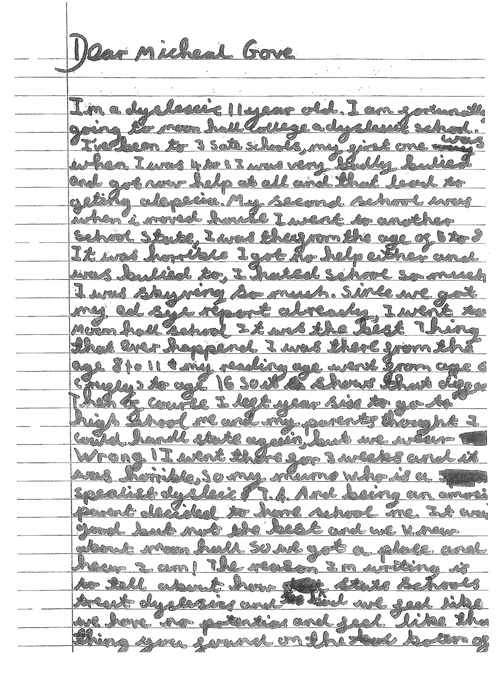 Dear Micheal Gove
I'm a dyslexic 11 year old. I am fortunatly
going to moon hall college a dyslexic school.
I've been to 3 Sate schools, my first one was
when I was 4 to 5 I was very badly bulied
and got now help at all and that lead to
geting alepecia. My second school was
when i moved house I went to another
School State, I was there from the age of 6 to 8
It was horrible I got to help either and
was bulied to, I hated school so much
I was skyving so much. Since we got
my ed syc report already, I went to
Moon hall school It was the best Thing
that ever happend. I was there from the
age 8 to 11 & my reading age went from age 6
to age 16 so it shows that
Then of course I left year six to go to
high school me and my parents thought I
could handl state again, but we wear
Wrong! I went there for 3 weeks and it
was horrible, so my mums who is a
spealist dyslexic T.A. And being an
parent decided to home school me. It
good but not the best and we knew
about moon hall so we got a place and
hear I am! The reason I'm writing is
to tell about how state schools
treat dyslexics and we feel like
we have no potential and feel like the
thing you found on the botom of